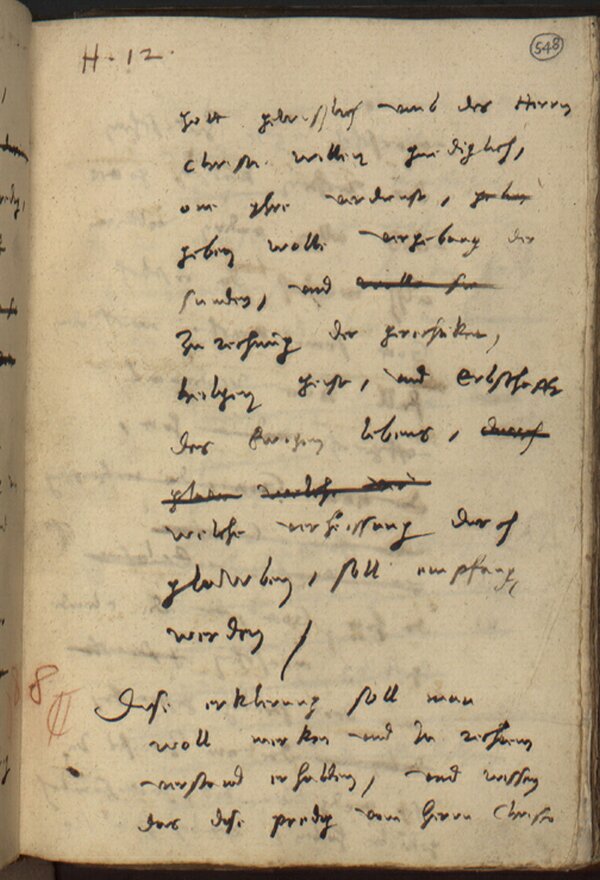 H. 12.
548
gott gewisslich umb des Herrn
Christi willen gnediglich,
one yhre verdienst,
geben wolle vergebung der
sunden, und wolle sie
Zu rechnung der gerechtikeit,
heiligen geist, und Erbschafft
des Ewigen lebens, durch
glauben welche wir
welche verheissung durch
glawben, soll empfangen
werden /
8
Diese erklerung soll man
woll merken und In rechtem
verstand erhalten, und wissen
das dise predig vom herrn Christo